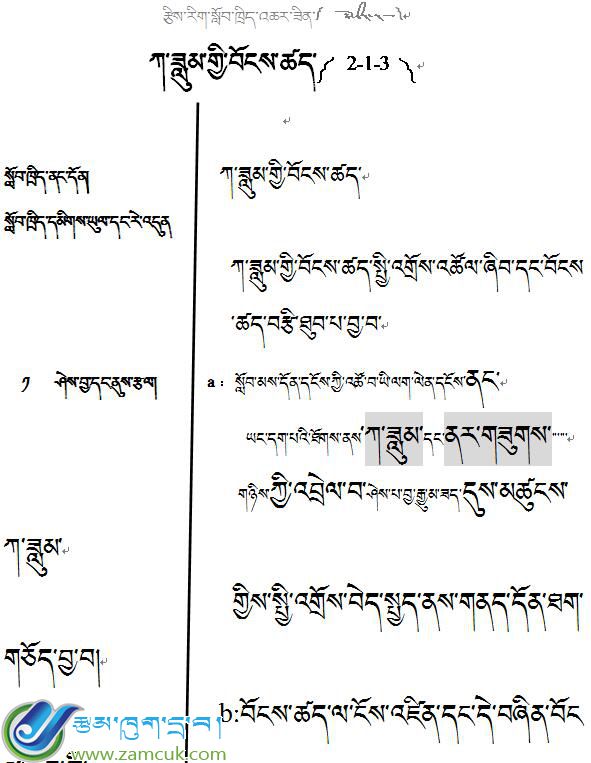 རྩིས་རིག་སློབ་ཁྲིད་འཆར་ཟིན།
ཀ་ཟླུམ་གྱི་བོངས་ཚད་༼ 2-1-3 ༽
སློབ་ཁྲིད་ནང་དོན།
ཀ་ཟླུམ་གྱི་བོངས་ཚད་
སློབ་ཁྲིད་དམིགས་ཡུལ་དང་རེ་འདུན
ཀ་ཟླུམ་གྱི་བོངས་ཚད་སྤྱི་འགྲོས་འཚོལ་ཞིབ་དང་བོངས
་ཚད་བརྩི་ཐུབ་པ་བྱ་བ་
༡ ཤེས་བྱ་དང་ནུས་རྩལ།
a : སློབ་མས་དོན་དངོས་ཀྱི་འཚོ་བ་ཡི་ལག་ལེན་དངོས་ནང་
ཡང་དག་པའི་ཐོགས་ནས་ཀ་ཟླུམ་དང་ནར་གཟུགས་
གཉིས་ཀྱི་འབྲེལ་བ་ཤེས་པ་བྱ་རྒྱུམ་ཟད་དུས་མཚུངས་
ཀ་ཟླུམ་
གྱིས་སྤྱི་འགྲོས་བེད་སྤྱད་ནས་གནད་དོན་ཐག་
གཅོད་བྱ་བ།
b:བོངས་ཚད་ལ་ངོས་འཛིན་དང་དེ་བཞིན་བོང
རྩམ་ཁུག་དྲ་བ།
www.zamcuk.com